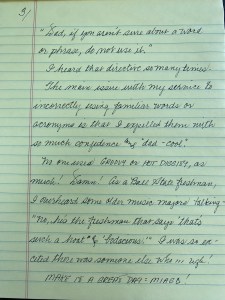 3/
"Dad, if you aren't sure about a word
or phrase, do not use it."
I heard that directive so many times!
The main issue with my service to
incorrectly using familiar words or
acronyms is that I expelled them with
so much confidence & "dad-cool."
No one used GROOVY or HOT DIGGITY, as
much! Damn! As a Ball State freshman,
I overheard some older music majors talking -
"No, he's the freshman that says 'that's
such a hoot' & 'bodacious.'" I was so ex-
cited there was someone else who is
MAKE IT A GREAT DAY =